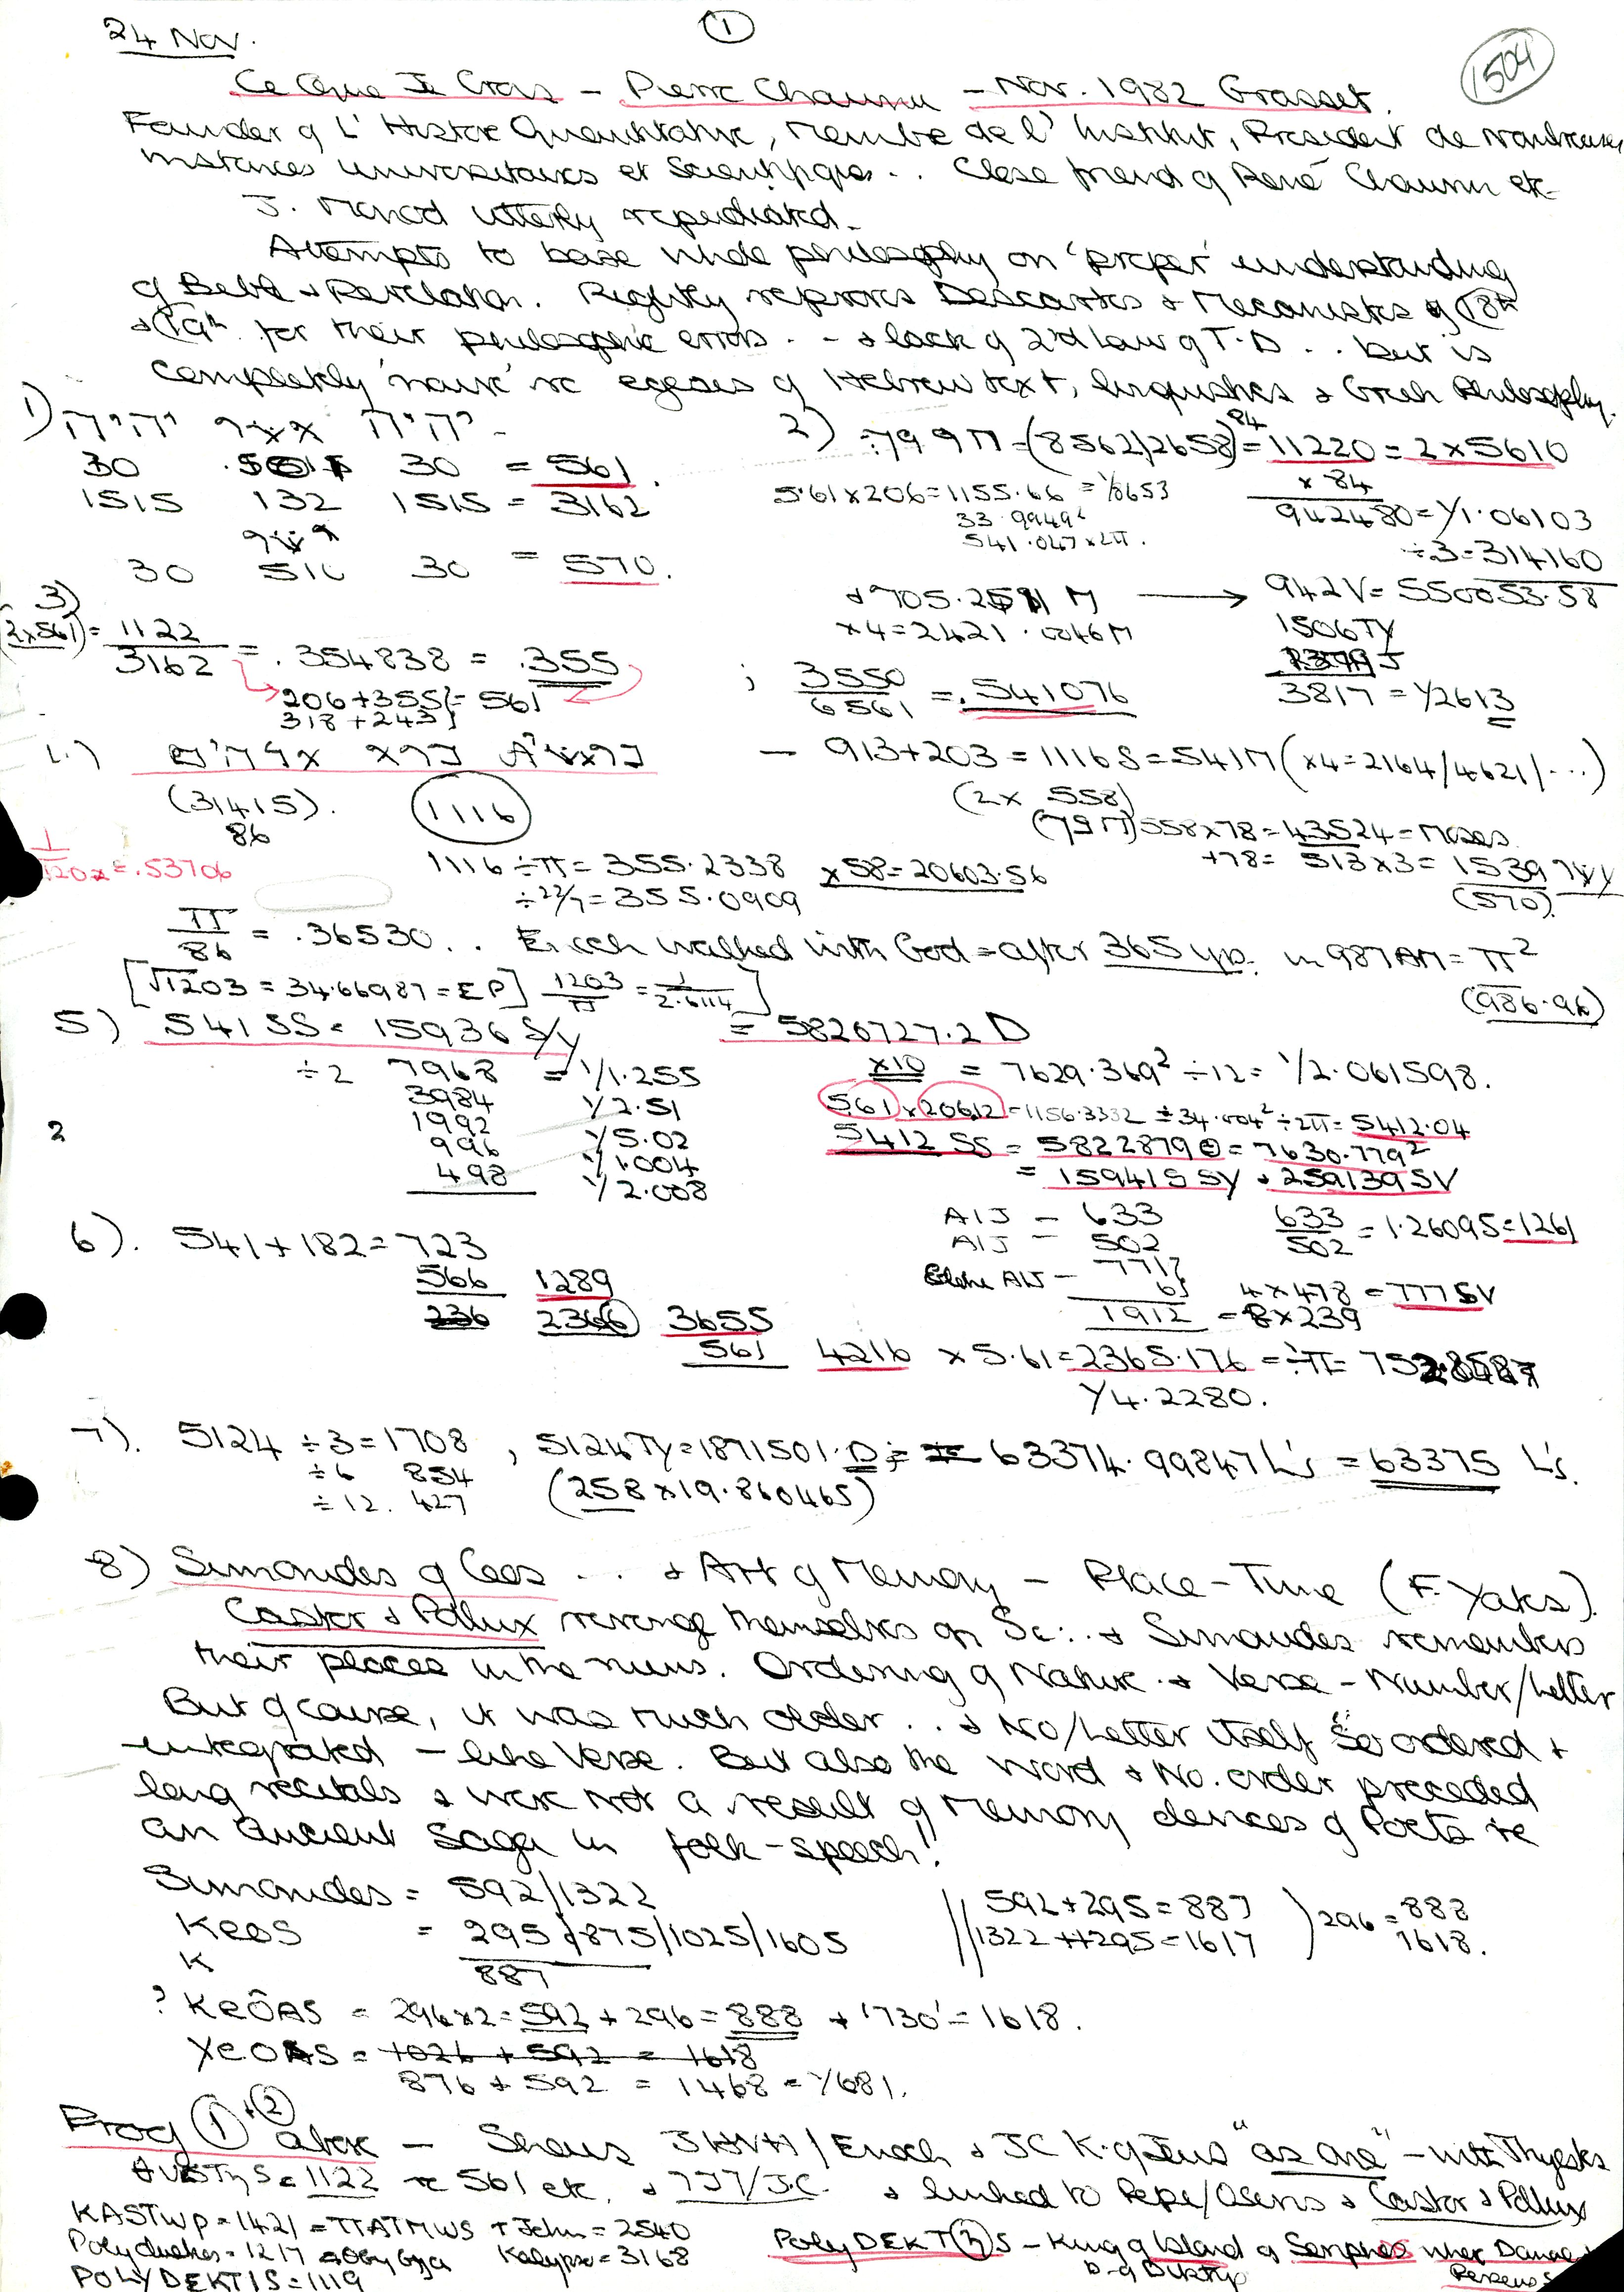 24 Nov.
①
1504
Ce Que Je Crois – Pierre Chaunu – Nov. 1982 Grasset.
Founder of L'Histoire Quantitative, Membre de l'Institut, President de nombreuses
instances universitaires et Scientifiques.. Close friend of René Chaunu etc
J. Monod utterly repudiated.
Attempts to base whole philosophy on 'proper' understanding
of Bible & Revelation. Rightly reproves Descartes & Mecanistes of 18th
& 19th for their philosophic errors. - & lack of 2nd Law of T.D .. but is
completely 'naive' re exegesis of Hebrew text, linguistics & Greek Philosophy.
1) אהיה אשר אהיה -
30 .501 30 = 561.
1515 132 1515 = 3162
30 510 30 = 570.
2) ÷799M = (8562/2658)84 = 11220 = 2 x 5610
5.61 x 206 = 1155.66 = 1/8653
33.9949²
541.047 x 2π.
x 84
942480 = 1/1.06103
÷3 = 314160
M → 942V = 550053.58
x4 = 2421.0046M
1506TY
3817 = 1/2613
3)
(2x561) = 1122/3162 = .354838 = .355
206 + 355 } = 561
318 + 243 }
; 3550/6561 = .541076
— 913 + 203 = 1116S = 541M (x4 = 2164/4621/...)
(31415).
86
1116
(2x 558)
(79M) 558 x 78 = 43524 = Moses
+78 = 513 x 3 = 1539
(570).
1/120x = .53706
1116 ÷ π = 355.2338 x 58 = 20603.56
÷ 22/7 = 355.0909
π/86 = .36530.. Enoch walked with God = after 365 yrs. in 987AM = π²
(986.96)
[√1203 = 34.66987 = EP] 1203/π = 1/2.6114]
5) 541 SS = 15936 S/y = 5820727.2 D
÷2 7968 = 1/1.255
3984 1/2.51
1992 1/5.02
996 1/1.004
498 1/2.008
2
x10 = 7629.369² ÷ 12 = 1/2.061598.
561 x 20612 = 1156.3332 ÷ 34.004² ÷ 2π = 5412.04
5412 SS = 5822879 = 7630.779²
= 159415 SY + 259139 SV
6). 541 + 182 = 723
566 1289
236 2366 3655
561 4216 x 5.61 = 2365.176 = ÷π =
1/4.2280.
A1J – 633
A1J – 502
633/502 = 1.26095 = 1261
A1J – 7717
65
1912 = 8 x 239
4 x 478 = 777SV
7). 5124 ÷ 3 = 1708, 5124TY = 1871501.D ÷ = 63374.99847 L's = 63375 L's.
÷6 854
÷12. 427
(258 x 19.860465)
8) Simonides of Ceos ... & Art of Memory – Place – Time (F. Yates).
Castor & Pollux revenge themselves on Sc:. & Simonides remembers
their places in the ruins. Ordering of Nature & Verse – Number/Letter
But of course, it was much older .. & No/Letter itself so ordered &
integrated – like Verse. But also the Word & No. order preceded
long recitals & were not a result of Memory devices of Poets re
an ancient Saga in folk-speech!
Simonides = 592/1322
Keos = 295/875/1025/1605
K
887
592 + 295 = 887
1322 + 295 = 1617
) 296 = 888
1618.
? KEOAS = 296 x 2 = 592 + 296 = 888 + '730' = 1618.
XEOAS = 1026 + 592 = 1618
876 + 592 = 1468 = 1/681.
Prog ① + ② above – Shews JHVH / Enoch & JC K. of Jews "as one" – with Thyestes
= 1122 re 561 etc. & /J.C. & linked to Pepi/Osiris & Castor & Pollux
KASTWP = 1421 = + John = 2540
Polydeukes = 1217 = Ogygia Kalypso = 3168
POLYDEKTIS = 1119
PolyDEKT(H)S – King of Island of Seriphos where Danae &
Perseus